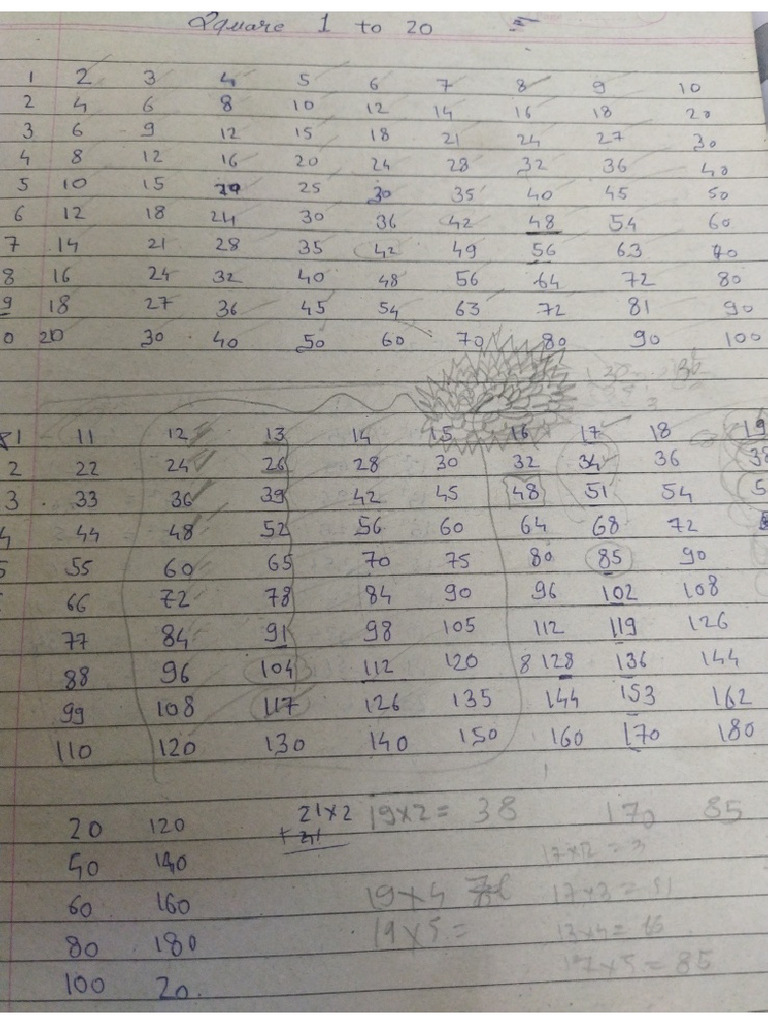 Square 1 to 20
1 2 3 4 5 6 7 8 9 10
2 4 6 8 10 12 14 16 18 20
3 6 9 12 15 18 21 24 27 30
4 8 12 16 20 24 28 32 36 40
5 10 15 20 25 30 35 40 45 50
6 12 18 24 30 36 42 48 54 60
7 14 21 28 35 42 49 56 63 70
8 16 24 32 40 48 56 64 72 80
9 18 27 36 45 54 63 72 81 90
0 20 30 40 50 60 70 80 90 100
1 11 12 13 14 15 16 17 18 19
2 22 24 26 28 30 32 34 36 38
3 33 36 39 42 45 48 51 54 5
4 44 48 52 56 60 64 68 72
5 55 60 65 70 75 80 85 90
66 72 78 84 90 96 102 108
77 84 91 98 105 112 119 126
88 96 104 112 120 8 128 136 144
99 108 117 126 135 144 153 162
110 120 130 140 150 160 170 180
20 120 21×2 19×2= 38 170 85
40 140
60 160 19×4 17×3=51
80 180 19×5=
100 20. 17×5=85